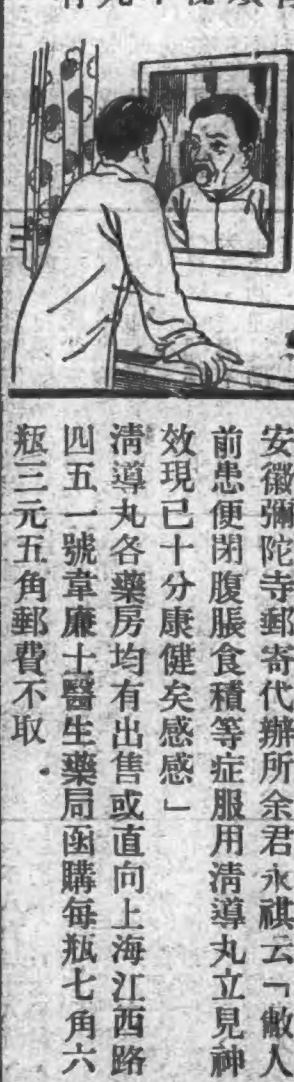 安徽彌陀寺郵寄代辦所余君永祺云「敝人
前患便閉腹脹食積等症服用清導丸立見神
效現已十分康健矣感感」
清導丸各藥房均有出售或直向上海江西路
四五一號韋廉士醫生藥局函購每瓶七角六
瓶三元五角郵費不取．